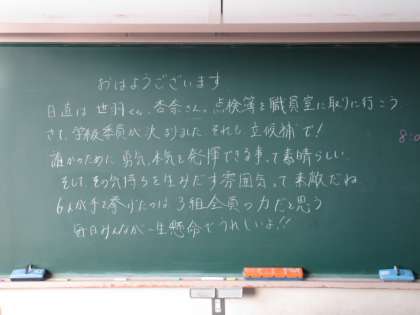 おはようございます
日直は 世羽くん、杏奈さん。点検簿を職員室に取りに行こう
さて、学級委員が決まりました それも立候補で!
誰かのために勇気、本気を発揮できる事、って素晴らしい。
そして、その気持ちを生みだす雰囲気って素敵だね
6人が手を挙げたのは 3組全員の力だと思う
毎日みんなが一生懸命でうれしいよ!!
8:0